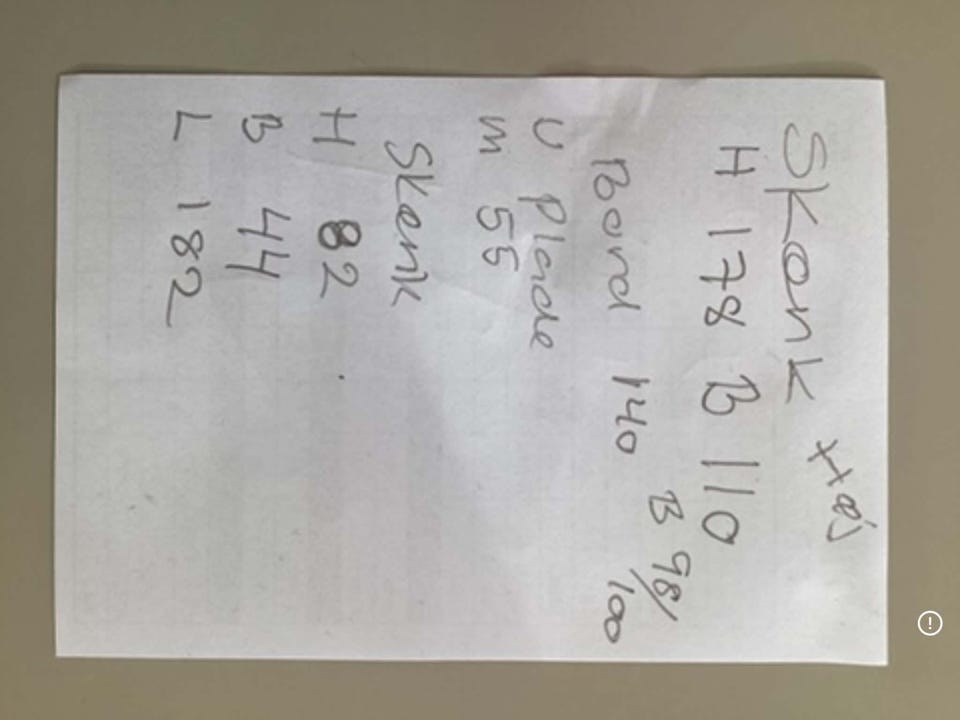 Skænk Høj
H 178 B 110
Bord 140 B 98/100
U Plade
m 55
Skænk
H 82
B 44
L 182